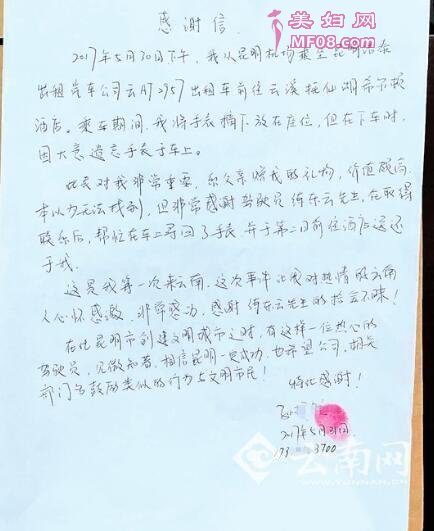 美妇网
MF08.com
感谢信
2017年5月30日下午，我从昆明机场乘坐昆明
出租汽车公司云AT2957出租车前往玉溪抚仙湖希尔顿
酒店。乘车期间，我将手表摘下放在座位，但在下车时，
因大意遗忘手表于车上。
此表对我非常重要，系父亲赠我的礼物，价值颇高。
本以为无法找到，但非常感谢驾驶员 东云先生，在取得
联系后，帮忙在车上寻回了手表并于第二日前往酒店送还
于我。
这是我第一次来云南，这次事件让我对热情的云南
人心怀感激，非常感动，感谢 东云先生的拾金不昧！
在此昆明市创建文明城市之时，有这样一位热心的
驾驶员，见微知著，相信昆明一定成功，也希望公司、相关
部门多鼓励类似的行为与文明市民！
特此感谢！
2017年5月31日
173 3700
云南网
WWW.YUNNAN.CN